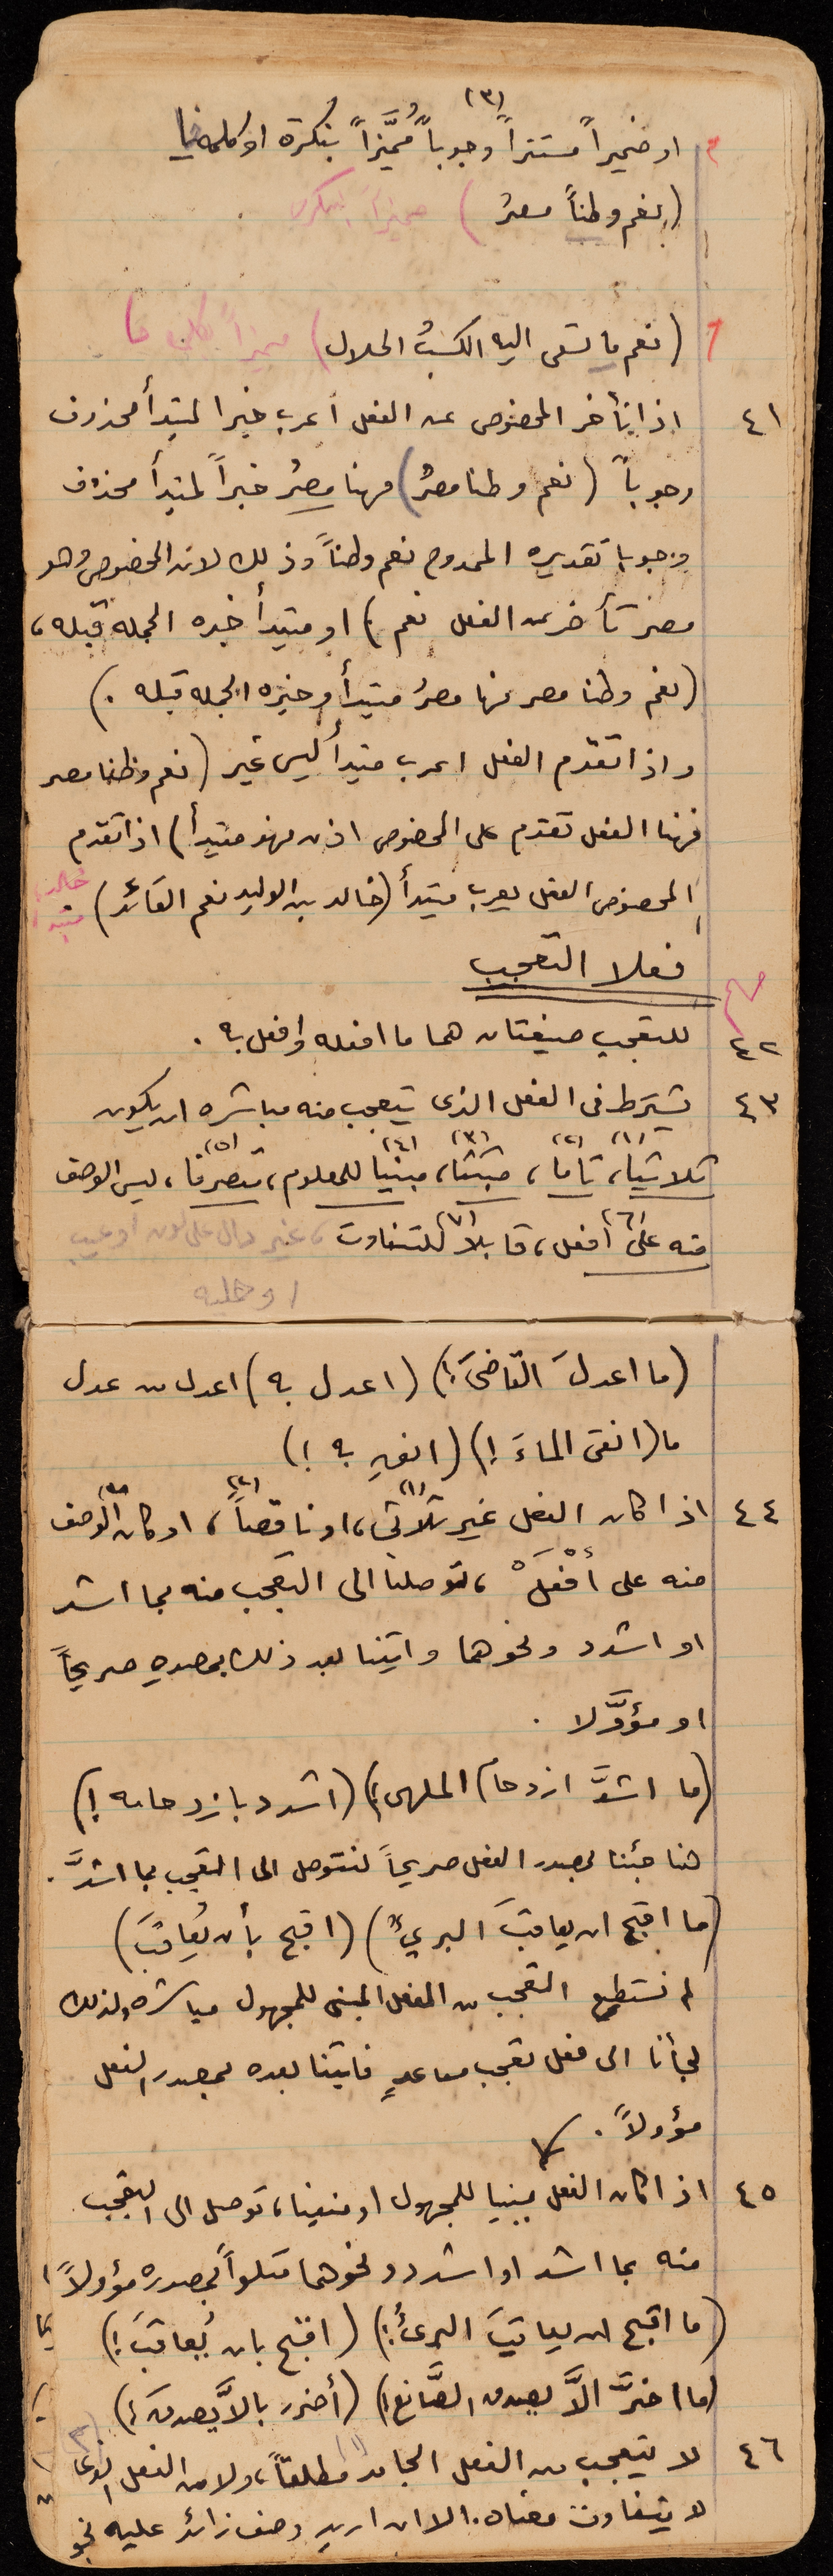 (٣)
او ضميراً مستتراً وجوباً مُمَيَّزاً بنكرة او كلمة ما
(نعم وطناً مصرُ) مميزاً بنكرة
(نعم ما تسعى اليه الكسبُ الحلال) مميزاً بكلمة ما
٤١ اذا تأخر المخصوص عن الفعل أعرب خبرا لمبتدأ محذوف
وجوباً (نعم وطنا مصرُ) فهنا مصرُ خبراً لمبتدأ محذوف
وجوبا تقديره الممدوح نعم وطناً وذلك لان المخصوص وهو
مصر تأخر عن الفعل نعم) او مبتدأ خبره الجملة قبله،
(نعم وطنا مصر فهنا مصرُ مبتدأ وخبره الجملة قبله.)
واذا تقدم الفعل اعرب مبتدأ ليس غير (نعم وطنا مصر
فهنا الفعل تقدم على المخصوص اذن فهو مبتدأ) اذا تقدم
المخصوص الفعل يعرب مبتدأ (خالد بن الوليد نعم القائد) خالد مبتدأ
فعلا التعجب
٤٢ للتعجب صيغتان هما ما افعله وافعل به.
٤٣ يشترط فى الفعل الذى يتعجب منه مباشرة ان يكون
(١) (٢) (٣) (٤) (٥)
ثلاثيا، تاما، مثبتا، مبنيا للمعلوم، متصرفا، ليس الوصف
(٦) (٧)
منه على أفعل، قابلا للتفاوت، غير دال على لون او عيب
او حلية
(ما اعدلَ القاضىَ!) (اعدل به) اعدل من عدل
ما (انقى الماءَ!) (انقِ به!)
(١) (٢) (٣)
٤٤ اذا كان الفعل غير ثلاثي، او ناقصاً، او كان الوصف
منه على أفْعَلْ، توصلنا الى التعجب منه بما اشد
او اشدد ونحوهما واتينا بعد ذلك بمصدرٍ صريحاً
او مؤوَّلا.
(ما اشدَّ ازدحامَ الملهى!) (اشدد بازدحامه!)
هنا جئنا بمصدر الفعل صريحاً لنتوصل الى التعجب بما اشدَّ.
(ما اقبح ان يعاقبَ البريءُ) (اقبح بأن يُعاقبَ)
لم نستطع التعجب من الفعل المبنى للمجهول مباشرة ولذلك
لجأنا الى فعل تعجب مساعدٍ فاتينا بعده بمصدر الفعل
مؤولاً.
٤٥ اذا كان الفعل مبنيا للمجهول او منفيا، توصل الى التعجب
منه بما اشد او اشدد ونحوهما متلواً بمصدره مؤولاً
(ما اقبح ان يعاقبَ البرىءُ!) (اقبح بان يُعاقبَ!)
(ما اضرَّ الاَّ يصدق الصَّانع!) (أضرر بالاَّ يصدقَ!)
(١) (٢)
٤٦ لا يتعجب من الفعل الجامد مطلقاً، ولا من الفعل الذى
لا يتفاوت معناه. الا ان اريد وصف زائد عليه نحو